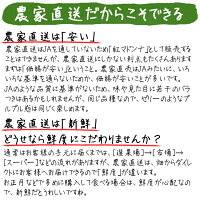 農家直送だからこそできる
農家直送は「安い」
農家直送はJAを通していないため「紅マドンナ」として販売する
ことはできませんが、農家直送にしかない利点もたくさんあります
まずは「価格が安い」ということ。農家直送はJAみたいに、いろ
いろな基準を通らないため、価格が安いことが多いです。
JAのような品質に基準がないため、味や見た目に若干のバラ
つきはあるかもしれませんが、同じ品種なので、ゼリーのようなプ
ルプル感は同じく楽しめます。
農家直送は「新鮮」
どうせなら鮮度にこだわりませんか?
通常はお客様の手元に届くまでは、[選果場]→[市場]→
[スーパー]などの流れがありますが、農家直送は、畑からダイレ
クトにお客様へお届けできるので「鮮度」が違います。
お正月などで多めに購入して食べる場合は、鮮度が心配なの
で、新鮮だとうれしいですね。